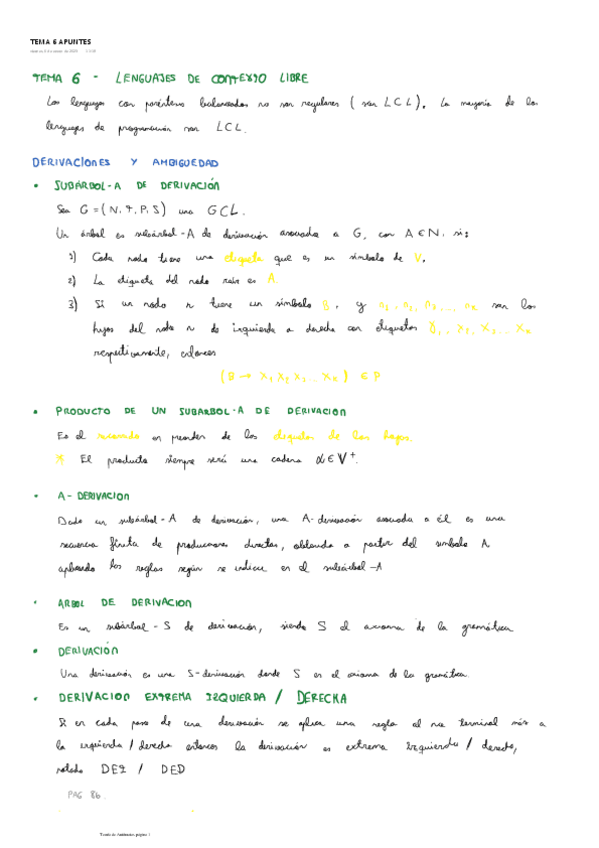 TEMA 6 APUNTES
TEMA 6 - LENGUAJES DE CONTEXTO LIBRE
Los lenguajes con paréntesis balanceados no son regulares ( son LCL ). La mayoría de los
lenguajes de programación son LCL.
DERIVACIONES Y AMBIGUEDAD
• SUBÁRBOL-A DE DERIVACIÓN
Sea G = ( N, T, P, S ) una GCL.
Un árbol es subárbol-A de derivación asociado a G, con A ∈ N, si:
1) Cada nodo tiene una etiqueta que es un símbolo de V.
2) La etiqueta del nodo raíz es A
3) Si un nodo n tiene un símbolo B, y n₁, n₂, n₃ ... nₖ son los
hijos del nodo n de izquierda a derecha con etiquetas X₁, X₂ ... Xₖ
respectivamente, entonces
( B → X₁ X₂ X₃ ... Xₖ ) ∈ P
• PRODUCTO DE UN SUBARBOL-A DE DERIVACION
Es el recorrido en preorden de los etiquetas de las hojas
* El producto siempre será una cadena α ∈ V⁺.
• A - DERIVACION
Dado un subárbol-A de derivación, una A-derivación asociada a él es una
secuencia finita de producciones directas, obtenida a partir del símbolo A
aplicando las reglas según se indican en el subárbol-A
• ARBOL DE DERIVACION
Es un subárbol-S de derivación, siendo S el axioma de la gramática
• DERIVACIÓN
Una derivación es una S-derivación donde S es el axioma de la gramática.
• DERIVACION EXTREMA IZQUIERDA / DERECHA
Si en cada paso de una derivación se aplica una regla al no terminal más a
la izquierda / derecha entonces la derivación es extrema izquierda / derecha,
notado DEI / DED
PAG 86.